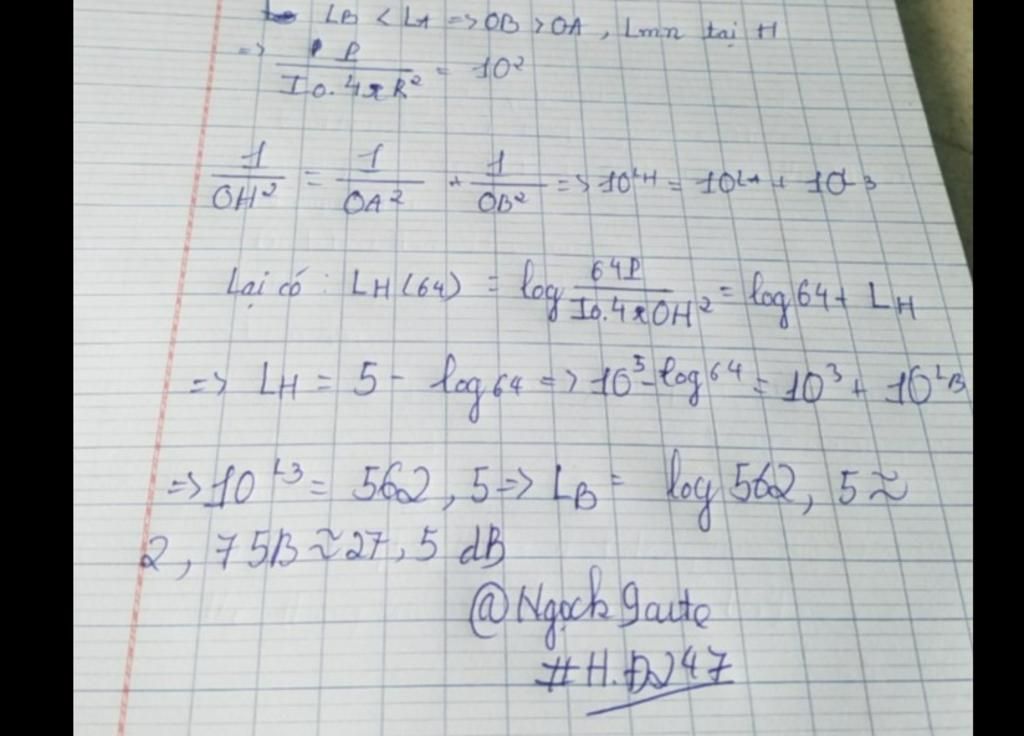 LB < LA => OB > OA, Lmn tại H
=> P / I0.4πR² = 10²
1/OH² = 1/OA² + 1/OB² => 10^LH = 10^LA + 10^LB
Lại có: LH(64) = log 64P / I0.4πOH² = log64 + LH
=> LH = 5 - log64 => 10^5-log64 = 10³ + 10^LB
=> 10^LB = 562,5 => LB = log562,5 ≈
2,75B ≈ 27,5 dB
#H.ĐJ247